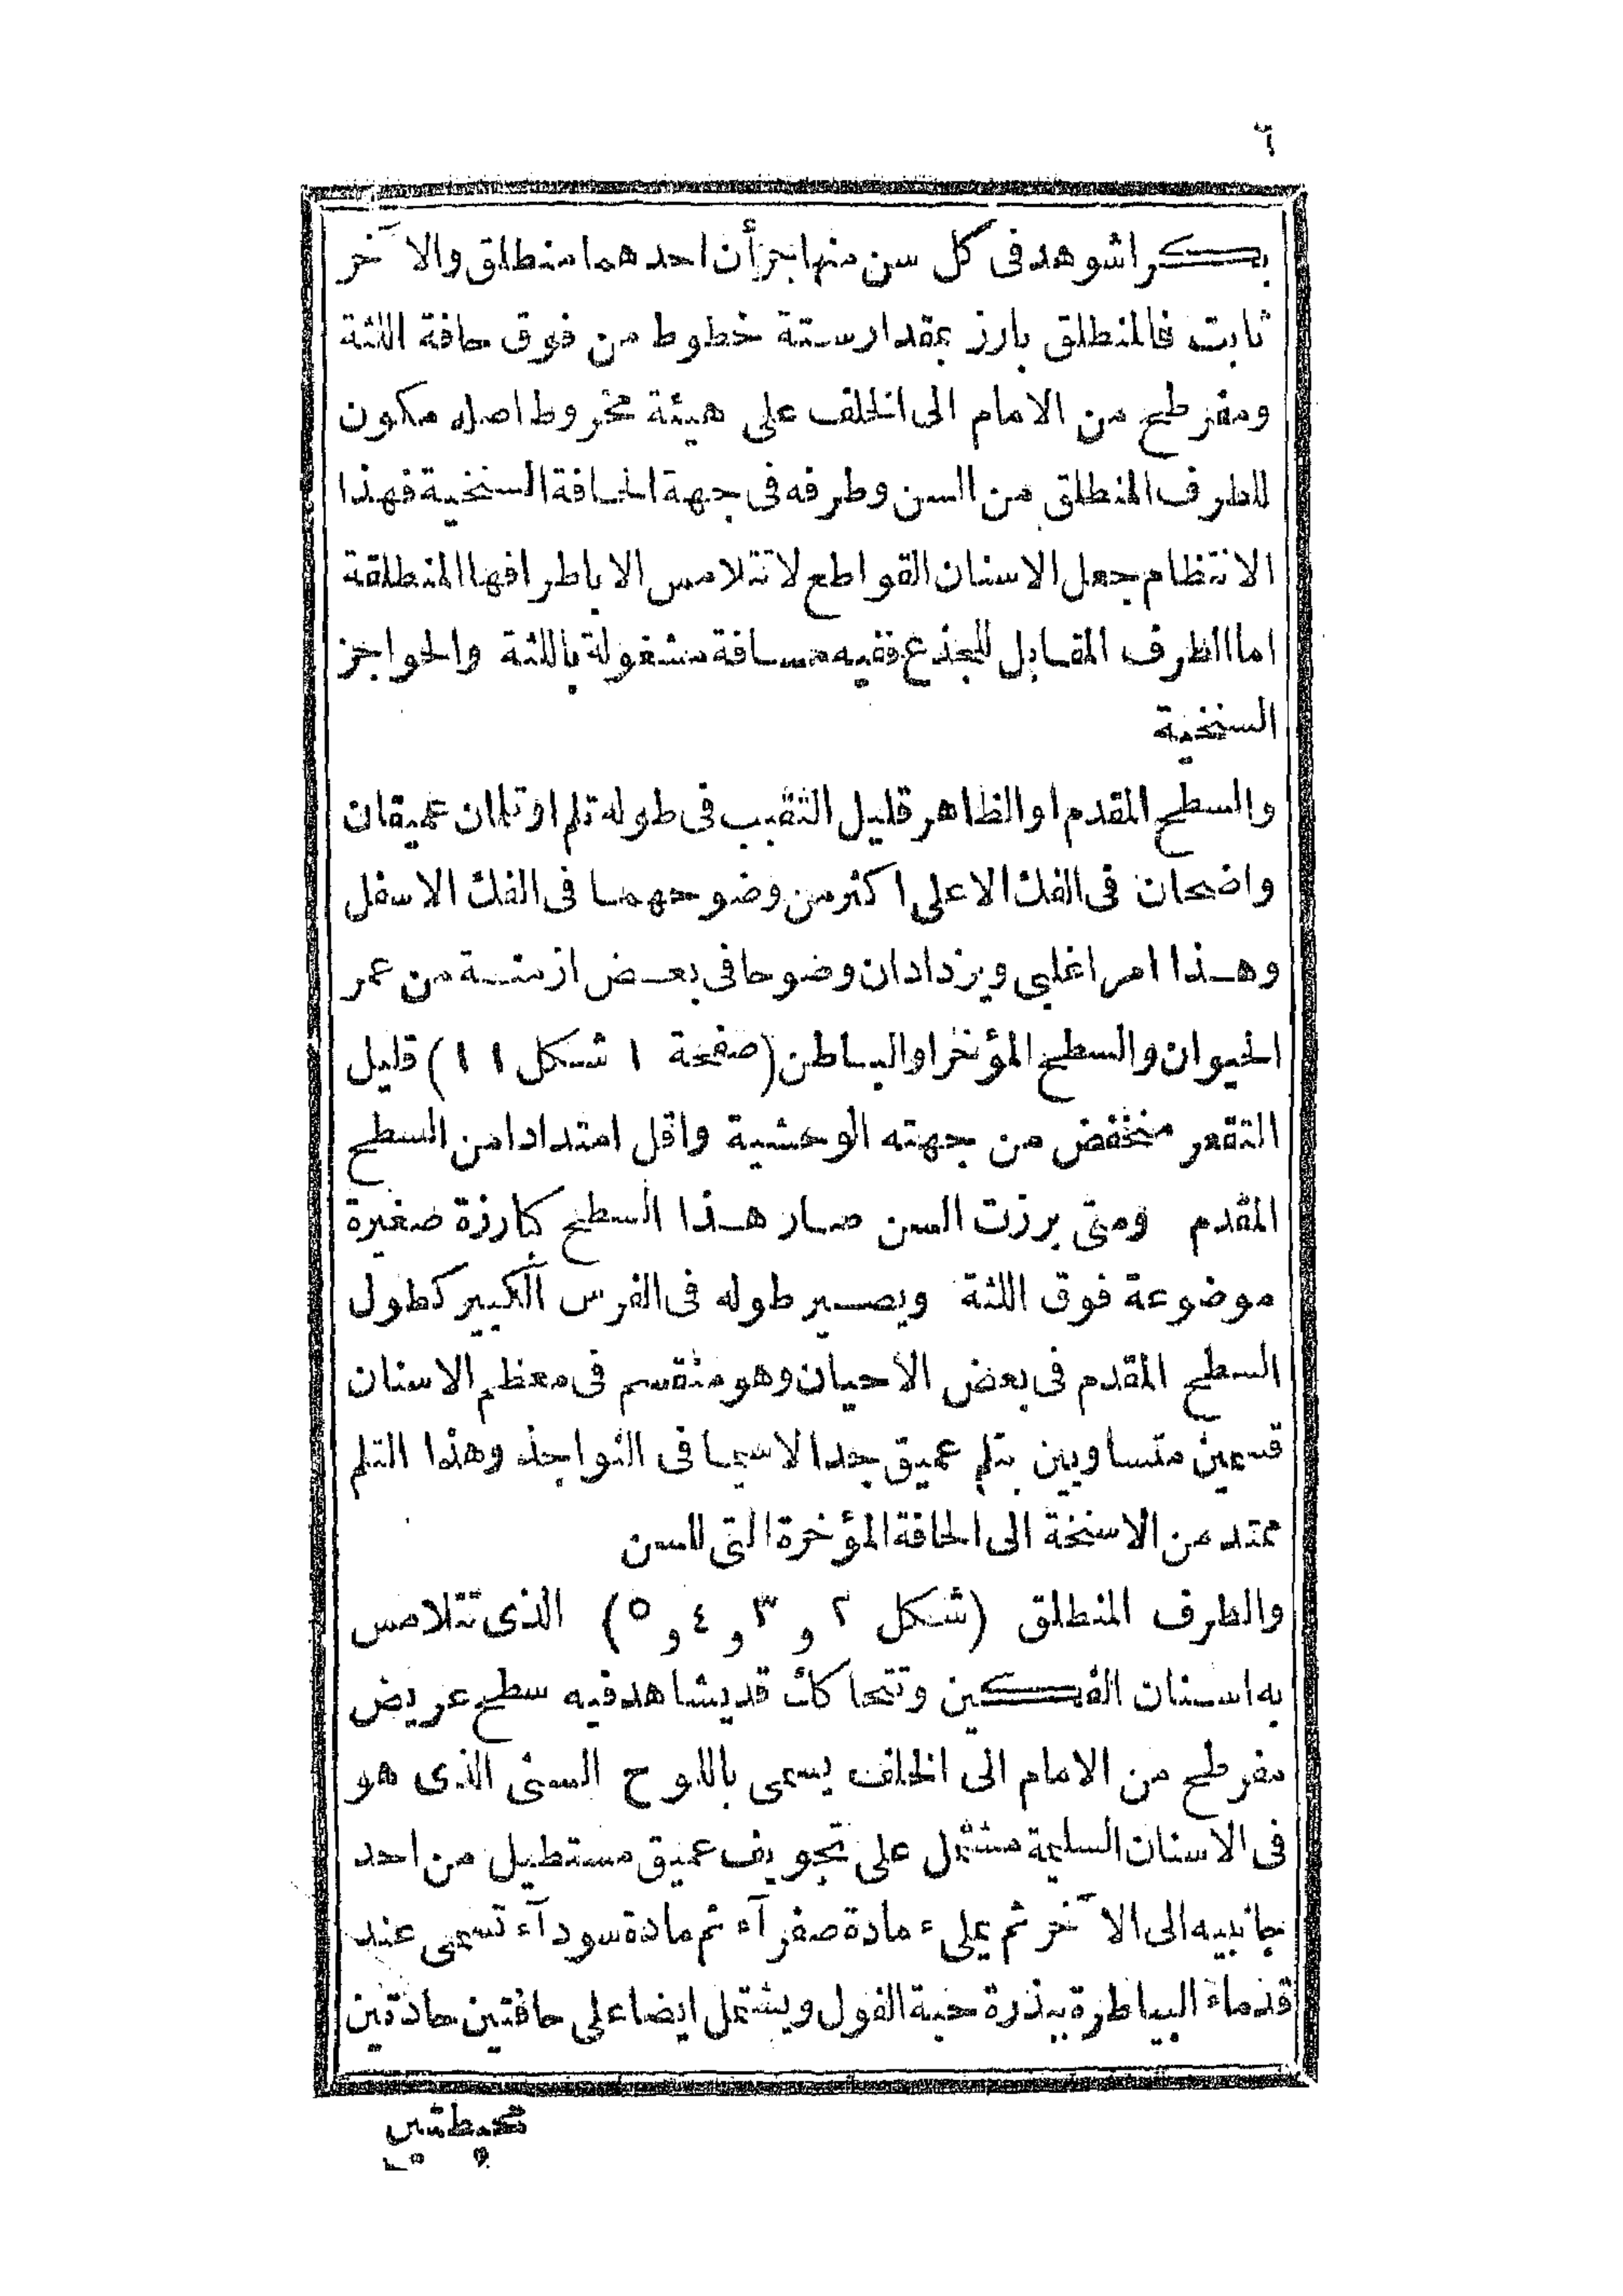 ٦
بكرا شوهد فى كل سن منها جزأن احدهما منطلق والآخر
ثابت فالمنطلق بارز بمقدار ستة خطوط من فوق حافة اللثة
ومفرطح من الامام الى الخلف على هيئة مخروط اصله مكون
للطرف المنطلق من السن وطرفه فى جهة الحافة السنخية فهذا
الانتظام جعل الاسنان القواطع لا تتلامس الا باطرافها المنطلقة
اما الطرف المقابل للجذع ففيه مسافة مشغولة باللثة والحواجز
السنخية
والسطح المقدم او الظاهر قليل التقبب فى طوله تلم او تلمان عميقان
واضحان فى الفك الاعلى اكثر من وضوحهما فى الفك الاسفل
وهذا امر اغلبى ويزدادان وضوحا فى بعض ازمنة من عمر
الحيوان والسطح المؤخر او الباطن (صفحة ١ شكل ١١) قليل
التقعر منخفض من جهته الوحشية واقل امتدادا من السطح
المقدم ومتى برزت السن صار هذا السطح كبارزة صغيرة
موضوعة فوق اللثة ويصير طوله فى الفرس الكبير كطول
السطح المقدم فى بعض الاحيان وهو منقسم فى معظم الاسنان
قسمين متساويين بتلم عميق جدا لاسيما فى النواجذ وهذا التلم
ممتد من الاسنخة الى الحافة المؤخرة التى للسن
والطرف المنطلق (شكل ٢ و ٣ و ٤ و ٥) الذى تتلامس
به اسنان الفكين وتتحاكك قد يشاهد فيه سطح عريض
مفرطح من الامام الى الخلف يسمى باللوح السنى الذى هو
فى الاسنان السليمة مشتمل على تجويف عميق مستطيل من احد
جانبيه الى الآخر ثم يملىء مادة صفرآء ثم مادة سودآء تسمى عند
قدماء البياطرة ببذرة حبة الفول ويشتمل ايضا على حافتين حادتين
محيطتين